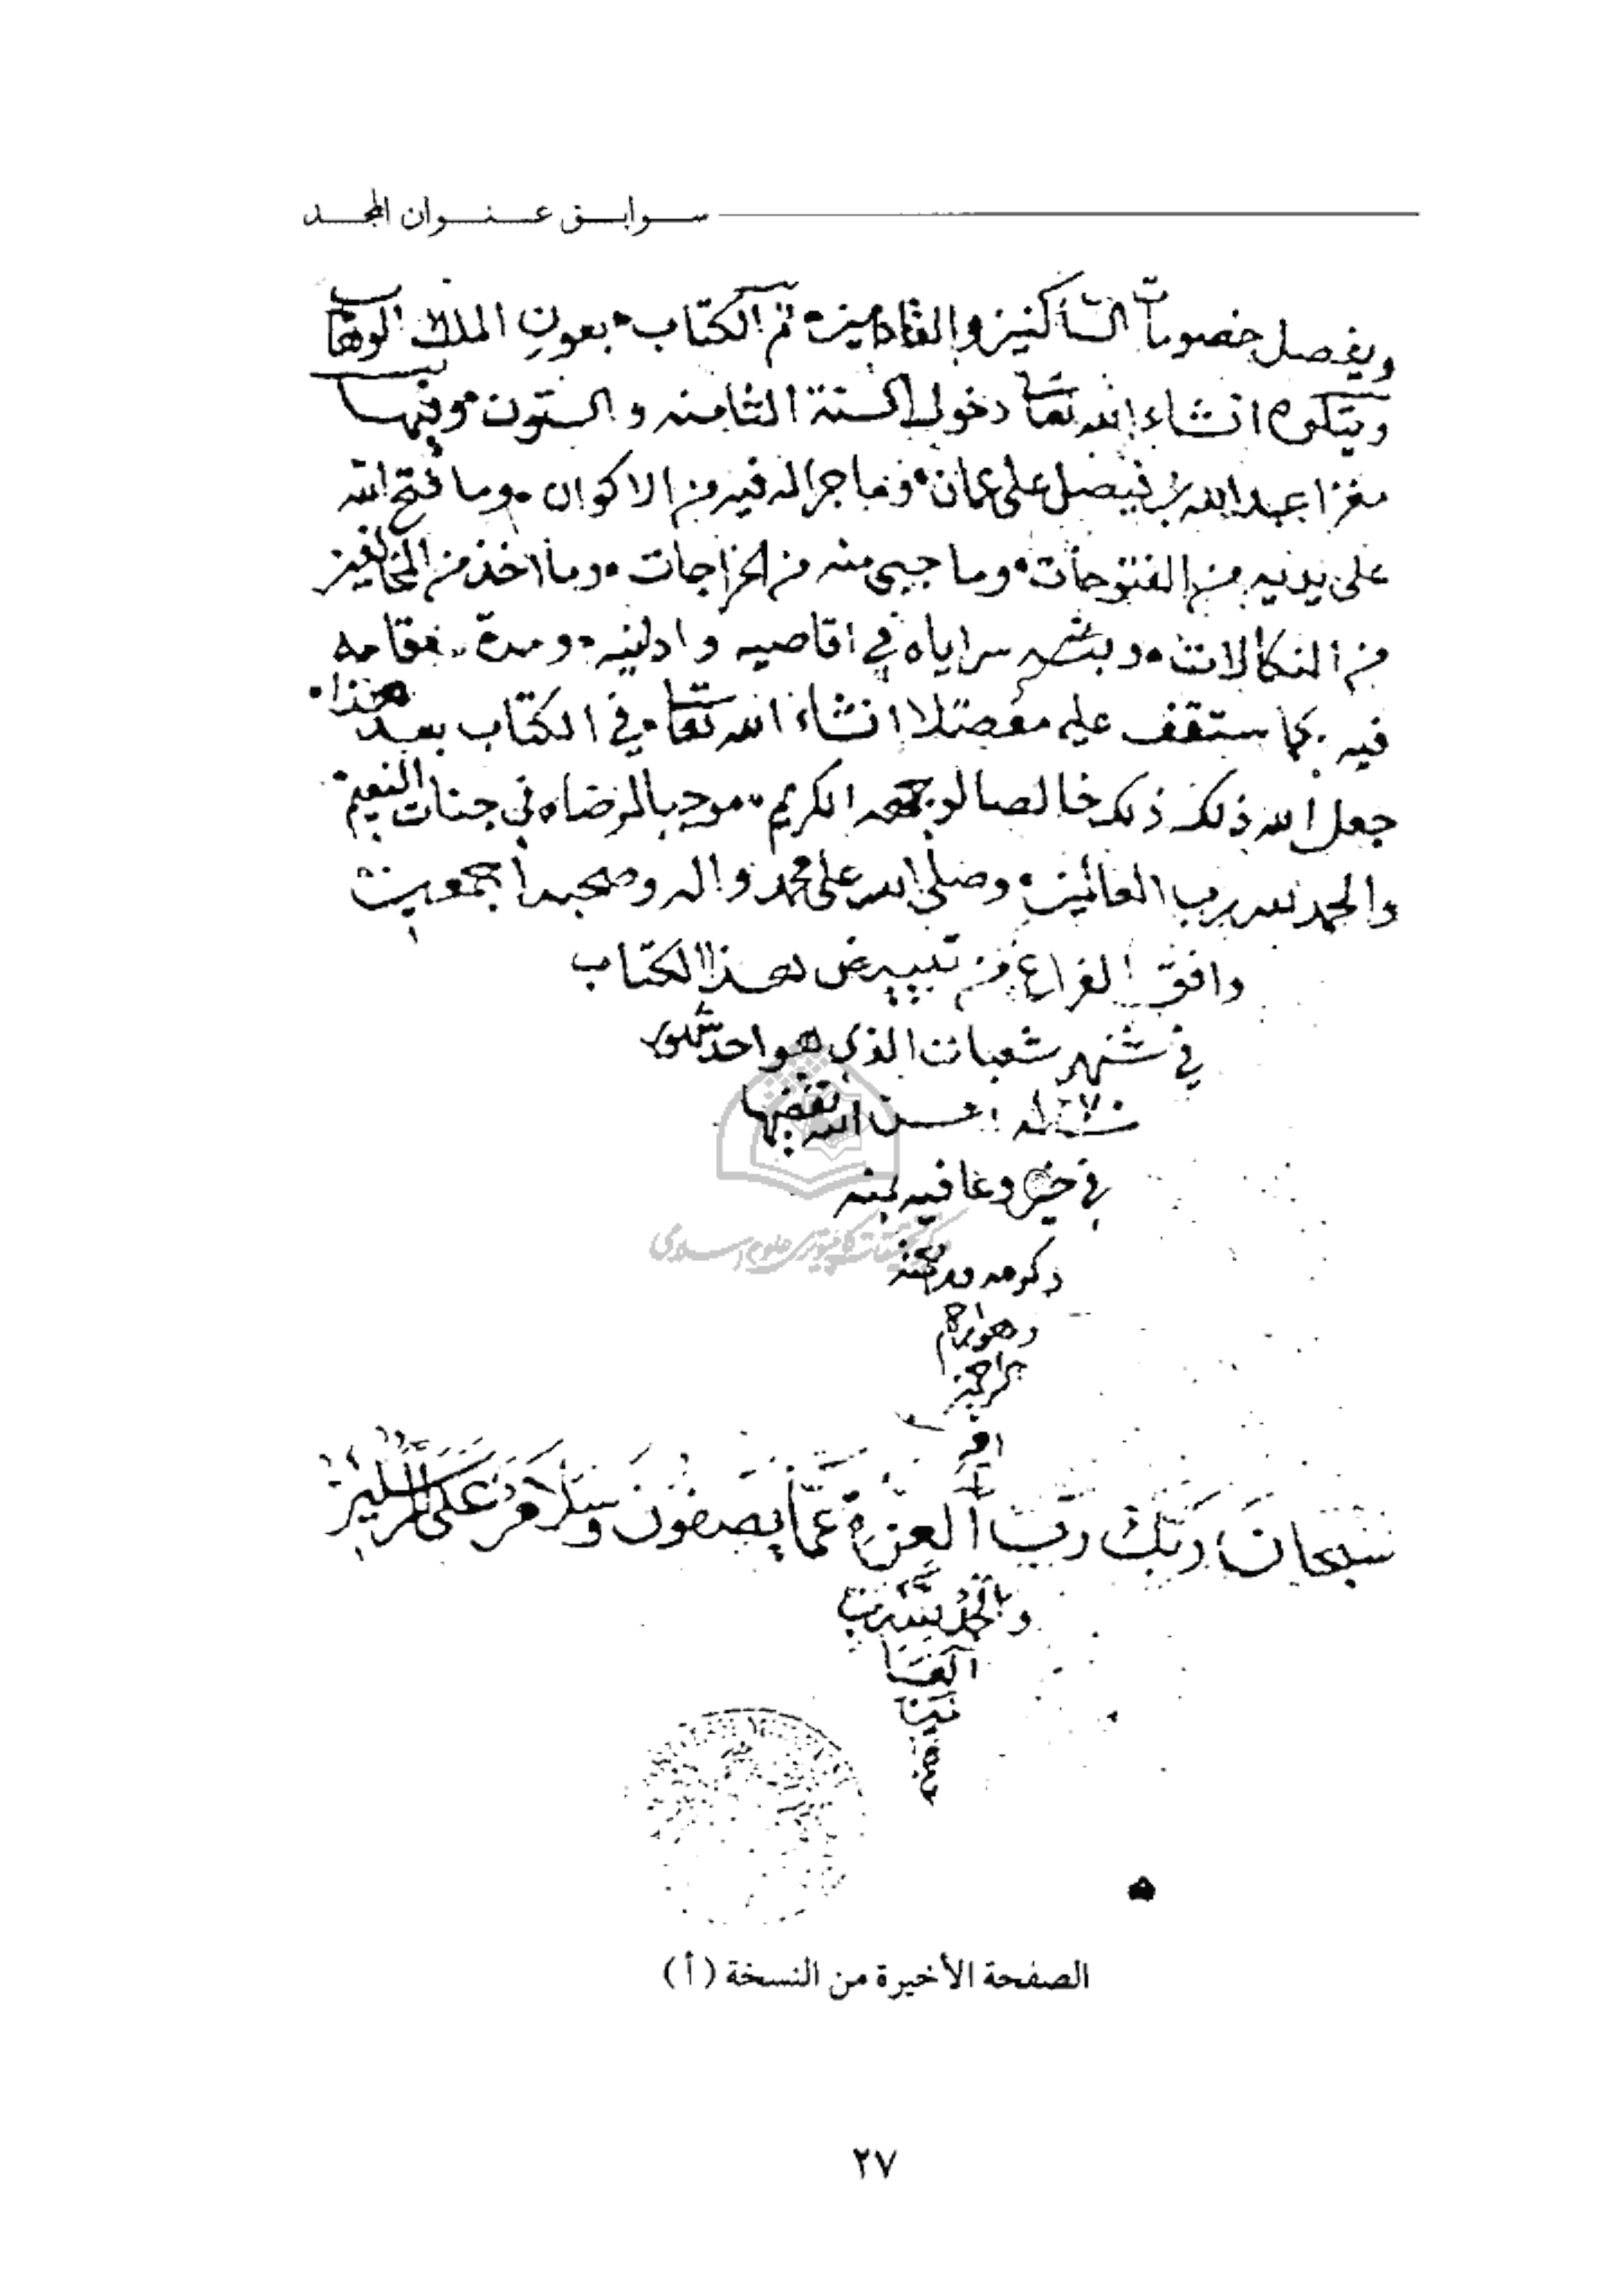 سوابق عنوان المجد
ويفصل خصومات الساكنين والقادمين تم الكتاب بعون الملك الوهاب
ويتلوه انشاء الله تعا دخول السنة الثامنه والستون وفيها
مغزا عبدالله بن فيصل على عمان وما جراله فيه من الاكوان وما فتح الله
على يديه من الفتوحات وما جبى منه من الخراجات وما اخذ من المخالفين
من النكالات وبثه سراياه في اقاصيه وادانيه ومدة مقامه
فيه كما ستقف عليه مفصلا انشاء الله تعا في الكتاب بعد هذا
جعل الله ذلك ذلك خالصا لوجهه الكريم موجبا لرضاه في جنات النعيم
والحمد لله رب العالمين وصلى الله على محمد واله وصحبه اجمعين
وافق الفراغ من تبييض هذا الكتاب
في شهر شعبان الذي هو احد شهور
سنة احسن الله تقضيها
في خير وعافيه بمنه
وكرمه ورحمته
وهو ارحم
الراحمين
امين
سبحان ربك رب العزة عما يصفون وسلام على المرسلين
والحمد لله رب
العا
لمين
مركز تحقيقات كامپيوترى علوم اسلامى
الصفحة الأخيرة من النسخة (أ)
٢٧